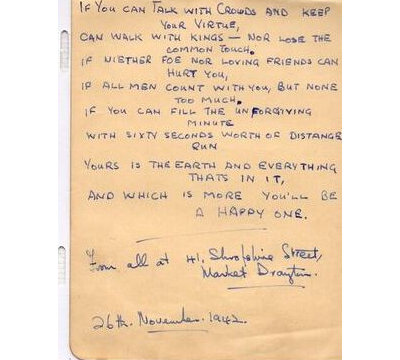 IF YOU CAN TALK WITH CROWDS AND KEEP
YOUR VIRTUE,
CAN WALK WITH KINGS – NOR LOSE THE
COMMON TOUCH.
IF NIETHER FOE NOR LOVING FRIENDS CAN
HURT YOU,
IF ALL MEN COUNT WITH YOU, BUT NONE
TOO MUCH.
IF YOU CAN FILL THE UNFORGIVING
MINUTE
WITH SIXTY SECONDS WORTH OF DISTANGE
RUN
YOURS IS THE EARTH AND EVERYTHING
THATS IN IT,
AND WHICH IS MORE YOU'LL BE
A HAPPY ONE.
From all at 41, Shropshire Street,
Market Drayton.
26th. November. 1942.